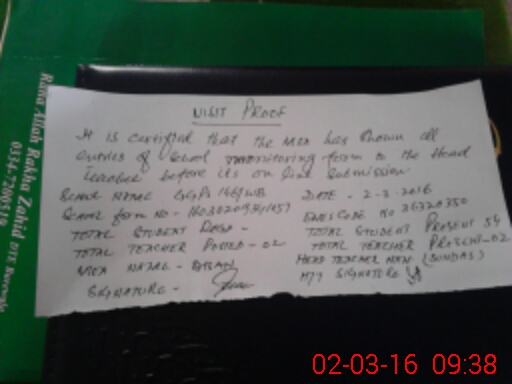 VISIT PROOF
It is certified that the MEA has shown all
entries of School monitoring form to the Head
Teacher before its on line submission
SCHOOL NAME GGPS 166/WB DATE - 2-3-2016
School form No - EMIS CODE NO 36320350
TOTAL STUDENT TOTAL STUDENT PRESENT 54
TOTAL TEACHER POSTED - 02 TOTAL TEACHER PRESENT-02
MEA NAME - HEAD TEACHER NAME (SUNDAS)
SIGNATURE - H/T SIGNATURE
Rana Allah Rakha Zahid DTE
02-03-16 09:38